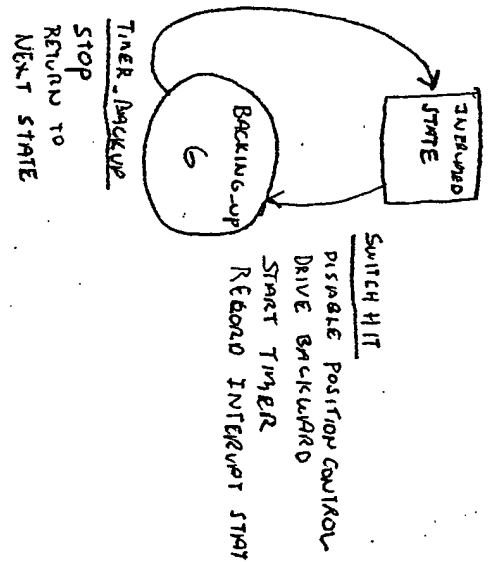 INTERRUPTED
STATE
SWITCH HIT
DISABLE POSITION CONTROL
DRIVE BACKWARD
START TIMER
RECORD INTERRUPT STAT
BACKING_UP
6
TIMER_BACKUP
STOP
RETURN TO
NEXT STATE